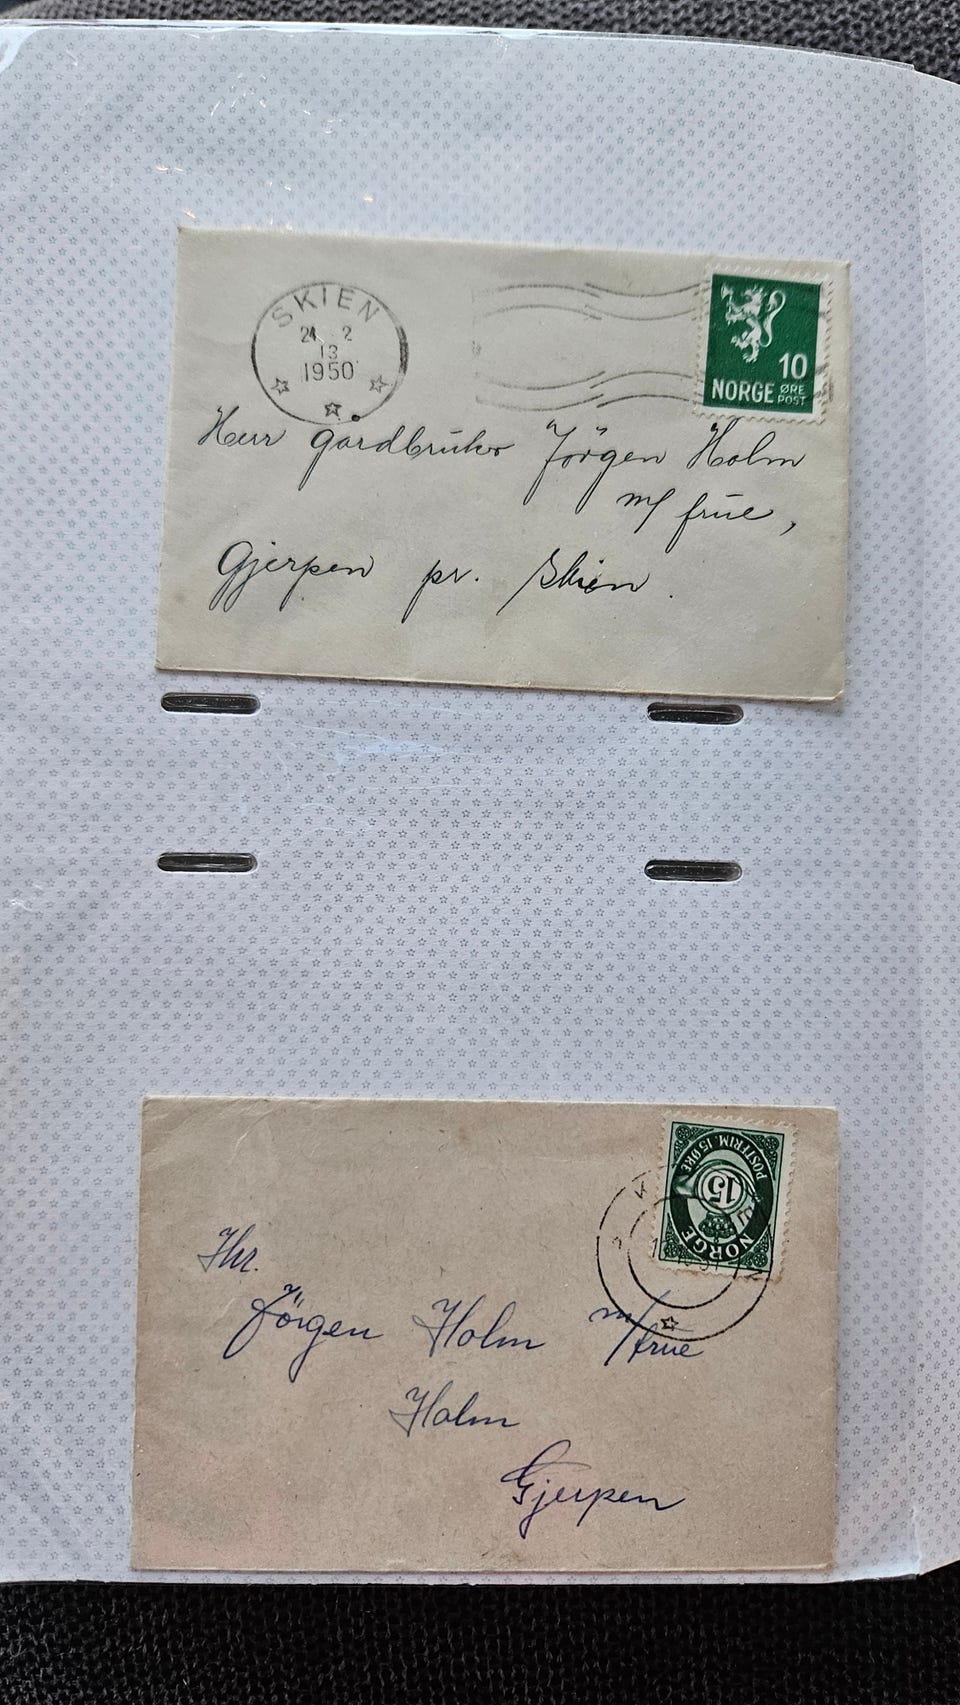 SKIEN
2
13
1950
10
NORGE ØRE
POST
Herr gårdbruker Jörgen Holm
m/ frue,
Gjerpen pr. Skien.
POSTFRIM. 15 ØRE
15
NORGE
Hr.
Jörgen Holm m/frue
Holm
Gjerpen